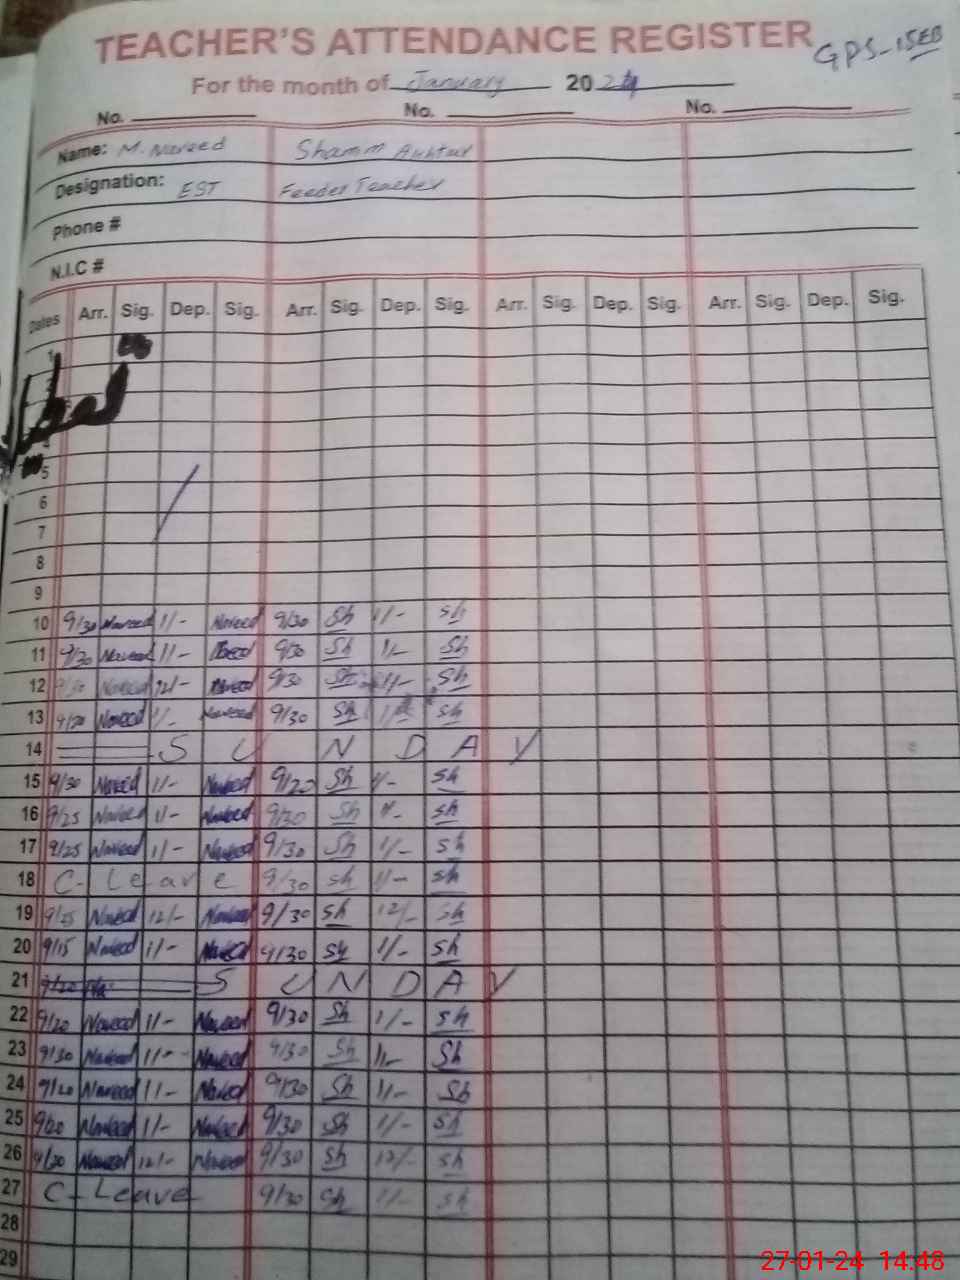 TEACHER'S ATTENDANCE REGISTER
GPS-15EB
For the month of January 2024
No. No. No.
Name: M. Naveed Shamm Akhtar
Designation: EST Feeder Teacher
Phone #
N.I.C #
Dates Arr. Sig. Dep. Sig. Arr. Sig. Dep. Sig. Arr. Sig. Dep. Sig. Arr. Sig. Dep. Sig.
1
5
6
7
8
9
10 9/30 Naveed 1/- Naveed 9/30 Sh 1/- Sh
11 9/30 Naveed 1/- Naveed 9/30 Sh 1/- Sh
12 Naveed 12/- Naveed 9/30 Sh 1/- Sh
13 9/20 Naveed 1/- Naveed 9/30 Sh Sh
14 SUNDAY
15 9/30 Naveed 1/- Naveed 9/20 Sh 1/- Sh
16 9/25 Naveed 1/- Naveed 9/30 Sh 1/- Sh
17 9/25 Naveed 1/- Naveed 9/30 Sh 1/- Sh
18 C-Leave 9/30 Sh 1/- Sh
19 9/25 Naveed 12/- Naveed 9/30 Sh 12/- Sh
20 9/15 Naveed 1/- Naveed 9/30 Sh 1/- Sh
21 9/20 Na SUNDAY
22 9/20 Naveed 1/- Naveed 9/30 Sh 1/- Sh
23 9/30 Naveed 1/- Naveed 9/30 Sh 1/- Sh
24 9/20 Naveed 1/- Naveed 9/30 Sh 1/- Sh
25 9/20 Naveed 1/- Naveed 9/30 Sh 1/- Sh
26 9/20 Naveed 12/- Naveed 9/30 Sh 12/- Sh
27 C-Leave 9/30 Sh 1/- Sh
28
29
27-01-24 14:48